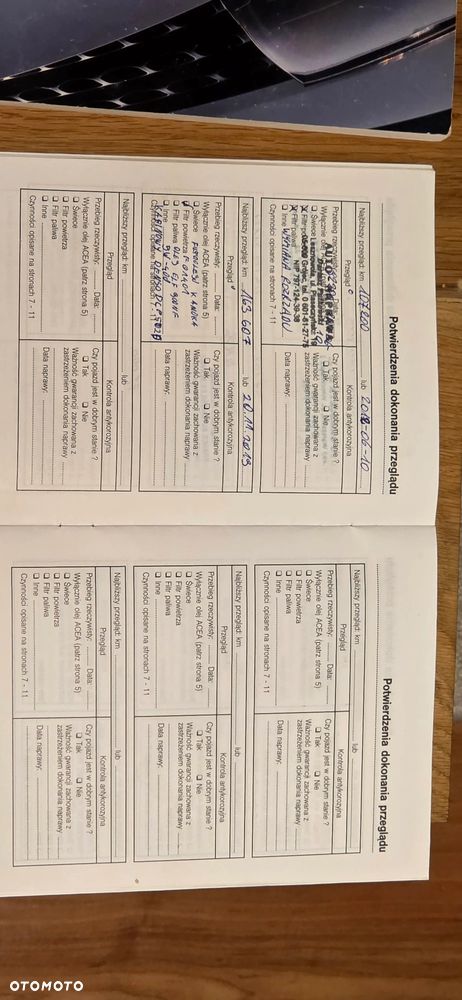 Potwierdzenia dokonania przeglądu
Najbliższy przegląd: km 107200 lub 2018-06-10
Przegląd Kontrola antykorozyjna
Przebieg rzeczywisty: Czy pojazd jest w dobrym stanie ?
Wyłącznie ☐ Tak ☐ Nie
☐ Świece Ważność gwarancji zachowana z
zastrzeżeniem dokonania naprawy
☐ Filtr paliwa Data naprawy:
☐ Inne WYMIANA ROZRZĄDU
Czynności opisane na stronach 7 - 11
Najbliższy przegląd: km 163 607 lub 20.11.2019
Przegląd Kontrola antykorozyjna
Przebieg rzeczywisty: Data: Czy pojazd jest w dobrym stanie ?
Wyłącznie olej ACEA (patrz strona 5) ☐ Tak ☐ Nie
☐ Świece Ważność gwarancji zachowana z
☐ Filtr powietrza zastrzeżeniem dokonania naprawy
☐ Filtr paliwa OLEJ ELF
☐ Inne Data naprawy:
Czynności opisane na stronach 7 - 11
Najbliższy przegląd: km lub
Przegląd Kontrola antykorozyjna
Przebieg rzeczywisty: Data: Czy pojazd jest w dobrym stanie ?
Wyłącznie olej ACEA (patrz strona 5) ☐ Tak ☐ Nie
☐ Świece Ważność gwarancji zachowana z
☐ Filtr powietrza zastrzeżeniem dokonania naprawy
☐ Filtr paliwa
☐ Inne Data naprawy:
Czynności opisane na stronach 7 - 11
Potwierdzenia dokonania przeglądu
Najbliższy przegląd: km lub
Przegląd Kontrola antykorozyjna
Przebieg rzeczywisty: Data: Czy pojazd jest w dobrym stanie ?
Wyłącznie olej ACEA (patrz strona 5) ☐ Tak ☐ Nie
☐ Świece Ważność gwarancji zachowana z
☐ Filtr powietrza zastrzeżeniem dokonania naprawy
☐ Filtr paliwa
☐ Inne Data naprawy:
Czynności opisane na stronach 7 - 11
Najbliższy przegląd: km lub
Przegląd Kontrola antykorozyjna
Przebieg rzeczywisty: Data: Czy pojazd jest w dobrym stanie ?
Wyłącznie olej ACEA (patrz strona 5) ☐ Tak ☐ Nie
☐ Świece Ważność gwarancji zachowana z
☐ Filtr powietrza zastrzeżeniem dokonania naprawy
☐ Filtr paliwa
☐ Inne Data naprawy:
Czynności opisane na stronach 7 - 11
Najbliższy przegląd: km lub
Przegląd Kontrola antykorozyjna
Przebieg rzeczywisty: Data: Czy pojazd jest w dobrym stanie ?
Wyłącznie olej ACEA (patrz strona 5) ☐ Tak ☐ Nie
☐ Świece Ważność gwarancji zachowana z
☐ Filtr powietrza zastrzeżeniem dokonania naprawy
☐ Filtr paliwa
☐ Inne Data naprawy:
Czynności opisane na stronach 7 - 11
OTOMOTO